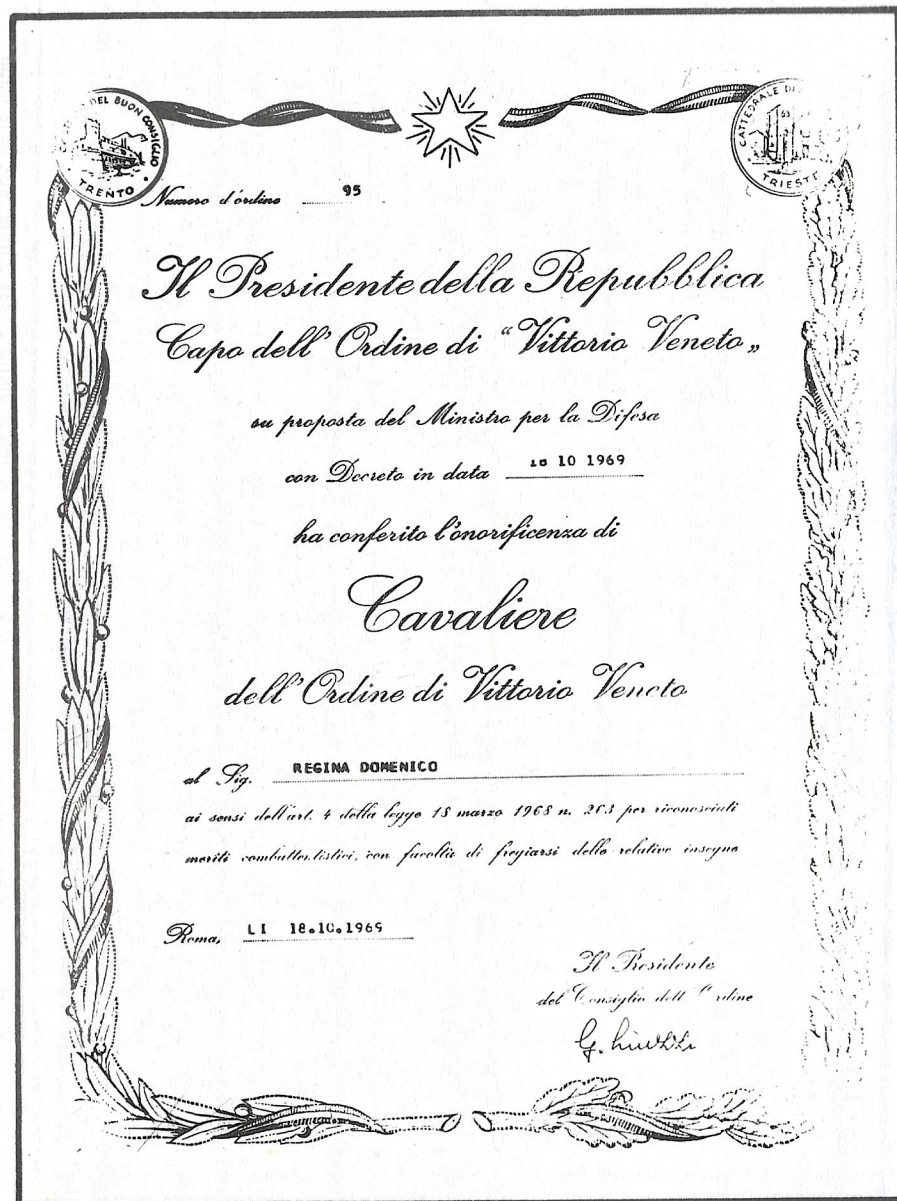 DEL BUON CONSIGLIO
TRENTO
CATTEDRALE DI
TRIESTE
Numero d'ordine 95
Il Presidente della Repubblica
Capo dell' Ordine di "Vittorio Veneto„
su proposta del Ministro per la Difesa
con Decreto in data 10 1969
ha conferito l'onorificenza di
Cavaliere
dell' Ordine di Vittorio Veneto
al Sig. REGINA DOMENICO
ai sensi dell'art. 4 della legge 18 marzo 1968 n. 263 per riconosciuti
meriti combattentistici, con facoltà di fregiarsi delle relative insegne
Roma, LI 18.10.1969
Il Presidente
del Consiglio dell'Ordine
G.